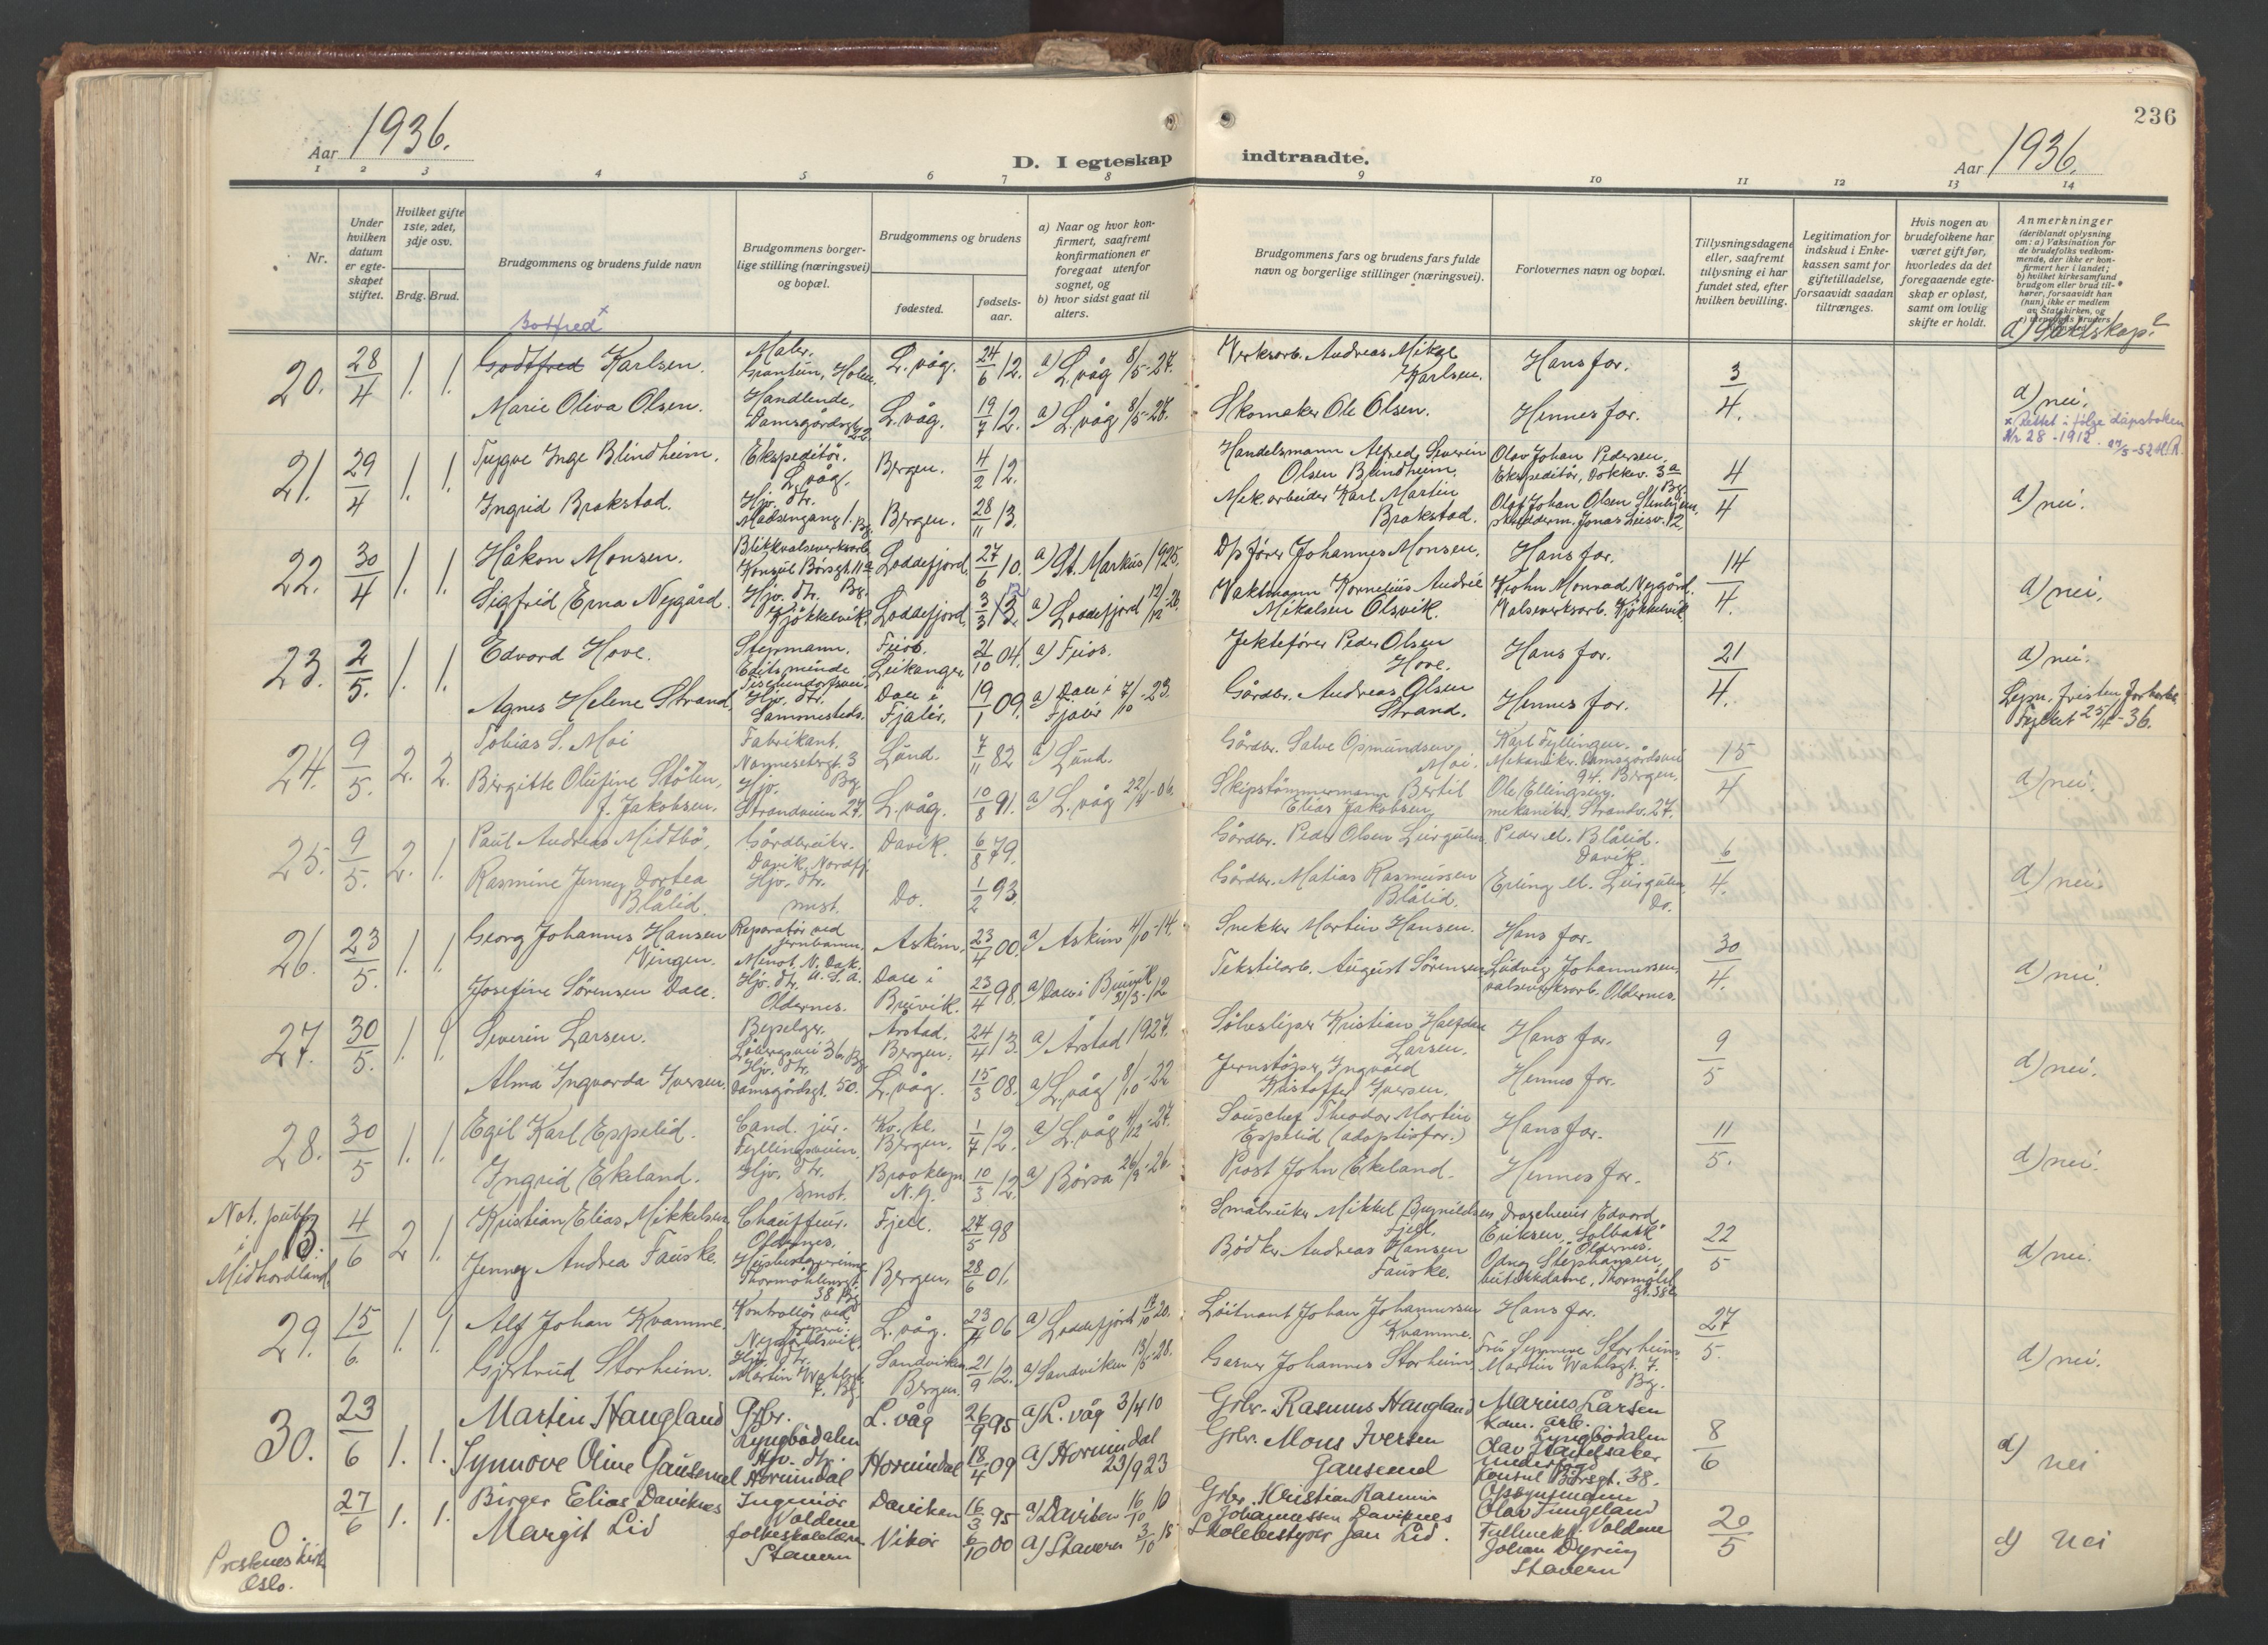 236
Aar 1936.
D. I egteskap indtraadte.
Aar 1936.
1 2 3 4 5 6 7 8 9 10 11 12 13 14
Nr.
Under hvilken datum er egteskapet stiftet.
Hvilket gifte 1ste, 2det, 3dje osv.
Brdg. Brud.
Brudgommens og brudens fulde navn
Brudgommens borgerlige stilling (næringsvei) og bopæl.
Brudgommens og brudens
fødested.
fødselsaar.
a) Naar og hvor konfirmert, saafremt konfirmationen er foregaat utenfor sognet, og
b) hvor sidst gaat til alters.
Brudgommens fars og brudens fars fulde navn og borgerlige stillinger (næringsvei).
Forlovernes navn og bopæl.
Tillysningsdagene eller, saafremt tillysning ei har fundet sted, efter hvilken bevilling.
Legitimation for indskud i Enkekassen samt for giftetilladelse, forsaavidt saadan tiltrænges.
Hvis nogen av brudefolkene har været gift før, hvorledes da det foregaaende egteskap er opløst, samt om lovlig skifte er holdt.
Anmerkninger
(deriblandt oplysning om: a) Vaksination for de brudefolks vedkommende, der ikke er konfirmert her i landet; b) hvilket kirkesamfund brudgom eller brud tilhører, forsaavidt han (hun) ikke er medlem av Statskirken, og
d) Slektskap?
Botfred x
20. 28/4 1. 1. Godtfred Karlsen. Maler. Grantun, Holen. L. våg. 24/6 12. a) L. våg 8/5-27. Verksarb. Andreas Mikal Karlsen. Hans far. 3/4. d) nei.
Marie Oliva Olsen. Handlende, Damsgårdsgt. 22. L. våg. 19/7 12. a) L. våg 8/5-27. Skomaker Ole Olsen. Hennes far.
x Rettet i følge dåpsboken Nr 28-1912.
21. 29/4 1. 1. Trygve Inge Blindheim. Ekspeditør. L. våg. Bergen. 4/2 12. Handelsmann Alfred Severin Olsen Blindheim. Olav Johan Pedersen, Ekspeditør, Dokkev. 3a Bg. 4/4 d) nei.
Ingrid Brakstad. Hjv. dtr. Madsengang 1. Bg. Bergen. 28/11 13. Mek. arbeider Karl Martin Brakstad. Olaf Johan Olsen
22. 30/4 1. 1. Håkon Monsen. Blikkvalseverksarb. Konsul Børsgt. 11a Bg. Loddefjord. 27/6 10. a) St. Markus 1925. Dpfører Johannes Monsen. Hans far. 14/4. d) nei.
Sigfrid Erna Nygård. Hjv. dtr. Kjökkelvik. Loddefjord. 3/3 13 a) Loddefjord 12/12-26. Vaktmann Kornelius Andreé Mikalsen Olsvik. Krohn Monrad Nygård. Valseverksarb. Kjökkelvik.
23. 2/5. 1. 1. Edvard Hove. Styrmann. Editsminde Feios. Leikanger 21/10 04. a) Feios. Jektefører Peder Olsen Hove. Hans far. 21/4. d) nei.
Agnes Helene Strand. Hjv. dtr. Sammesteds. Dale i Fjaler. 19/1 09. a) Dale i Fjaler 7/10-23. Gårdbr. Andreas Olsen Strand. Hennes far. Lysn. fristen forkortet Fylket 25/4-36.
24. 9/5. 2. 2. Tobias S. Moi Fabrikant. Nonnesetergt. 3 Bg. Lund. 7/11 82 a) Lund. Gårdbr. Salve Osmundsen Moi. Karl Fyllingen. Mekaniker. Damsgårdsvei 94. Bergen. 15/4 d) nei.
Birgitte Olufine Stölen, f. Jakobsen. Hjv. Strandveien 27. L. våg. 10/8 91. a) L. våg 22/4-06. Skipstömmermann Bertil Elias Jakobsen. Ole Ellingsen. mekaniker, Strandv. 27.
25. 9/5. 2. 1. Paul Andreas Midtbö. Gårdbruker. Davik, Nordfj. Davik. 6/8 79. Gårdbr. Peder Olsen Leirgulen Peder M. Blålid. Davik. 6/4. d) nei.
Rasmine Jenny Dortea Blålid. Hjv. dtr. smst. Do. 1/2 93. Gårdbr. Matias Rasmussen Blålid. Erling M. Leirgulen Do.
26. 23/5. 1. 1. Georg Johannes Hansen Vingen. Reparatør ved jernbanen. Minot, N. Dak. U.S.A. Askim. 23/4 00. a) Askim 4/10-14. Snekker Martin Hansen. Hans far. 30/4. d) nei.
Josefine Sörensen Dale. Hjv. dtr. Oldernes. Dale i Bruvik. 23/4 98. a) Dale i Bruvik 31/3-12 Tekstilarb. August Sörensen Ludvig Johannessen, valseverksarb. Oldernes.
27. 30/5. 1. 1. Severin Larsen. Bryggersvei 36. Bg. Årstad. Bergen. 24/4 13. a) Årstad 1927. Sölvsliper Kristian Halfdan Larsen. Hans far. 9/5 d) nei.
Alma Ingvarda Iversen. Hjv. dtr. Damsgårdsgt. 50. L. våg. 15/3 08. a) L. våg 8/10-22 Jernstöper Ingvald Kristoffer Iversen. Hennes far.
28. 30/5 1. 1. Egil Karl Espelid. Cand. jur. Fyllingsveien. Kv. kl. Bergen. 1/7 12. a) L. våg 4/12-27. Souschef Theodor Martin Espelid (adoptivfar.) Hans far. 11/5. d) nei.
Ingrid Ekeland. Hjv. dtr. smst. Brooklyn N.Y. 10/3 12. a) Börsa 26/9-26. Prost John Ekeland. Hennes far.
Not. publ. i Midhordland
B. 4/6 2 1. Kristian Elias Mikkelsen Chauffeur. Oldernes. Fjell. 27/5 98 Småbruker Mikkel Fjell. Edvard Eriksen, "Solbakk" Oldernes. 22/5 d) nei.
Jenny Andrea Fauske. Thormöhlensgt. 38 Bg Bergen. 28/6 01. Bödker Andreas Hansen Fauske. Stephansen, butikkdame, Thormöhl. gt. 38
29. 15/6. 1. 1. Alf Johan Kvamme. Kontrollör ved L. våg. 23/4 06 a) Loddefjord 17/10 20. Löitnant Johan Johannessen Kvamme. Hans far. 27/5. d) nei.
Gjertrud Storheim. Hjv. dtr. Martin Wahlsgt. 7. Bg. Sandviken, Bergen. 21/9 12. a) Sandviken 13/5-28. Garver Johannes Storheim. Frö. Synneve Storheim. Martin Wahlsgt. 7. Bg.
30. 23/6 1. 1. Martin Haugland Grbr. Lyngbödalen L. våg 26/9 95 a) L. våg 3/4 10 Grbr. Rasmus Haugland Marius Larsen Kom. arb. Lyngbödalen 8/6 d) nei
Synnöve Oline Gausemel Hjv. dtr. Hornindal Hornindal 18/4 09 a) Hornindal 23/9 23 Grbr. Mons Iversen Gausemel Olav Konsul Börsgt. 38.
O. Oslo.
27/6 1. 1. Birger Elias Daviknes Ingeniör Voldene Daviken 16/3 95 a) Daviken 16/10 10 Grbr. Kristian Rasmus Johannessen Daviknes Olav Tungeland Voldene 20/5 d) nei
Margit Lid folkeskolelær. Stavern Vikör 6/10 00 a) Stavern 3/10 15 Skolebestyrer Jan Lid. Johan Dyring Stavern